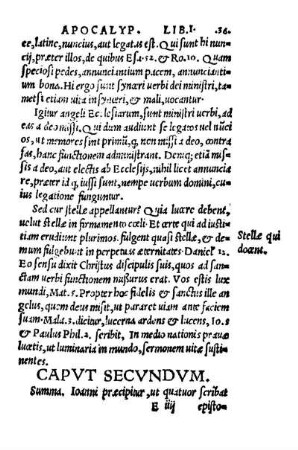 APOCALYP. LIB. I. 36.
ce, latine, nuncius, aut legatus est. Qui sunt hi nun
cij, præter illos, de quibus Esa. 52. & Ro. 10. Quam
speciosi pedes, annunciantium pacem, annuncianti-
um bona. Hi ergo sunt synceri uerbi dei ministri, ta-
metsi etiam uita in synceri, & mali, uocantur.
Igitur angeli Ecclesiarum, sunt ministri uerbi, ad
eas a deo missi. Qui dum audiunt se legatos uel nūci
os, ut memores sint primū, non missi a deo, contra
fas, hanc functionem administrant. Denq; etiā mis-
sis a deo, aut electis ab Ecclesijs, nihil licet annuncia
re, præter id q, iussi sunt, nempe uerbum domini, cu-
ius legatione funguntur.
Sed cur stellæ appellantur? Quia lucere debent,
uelut stellæ in firmamento cœli. Et arte qui ad iusti-
tiam erudiunt plurimos, fulgent quasi stellæ, & de-
mum fulgebunt in perpetuas æternitates. Daniel. 12.
Eo sensu dixit Christus discipulis suis, quos ad san-
ctam uerbi functionem missurus erat. Vos estis lux
mundi, Mat. 5. Propter hoc fidelis & sanctus ille an
gelus, quem deus misit, ut pararet uiam ante faciem
suam. Mala. 3. dicitur, lucerna ardens & lucens, Io. 5
& Paulus Phil. 2. scribit, In medio nationis prauæ
luxtis, ut luminaria in mundo, sermonem uitæ susti-
nentes.
Stellæ qui
docent.
CAPVT SECVNDVM.
Summa. Ioanni præcipitur, ut quatuor scribat
E iiij episto-